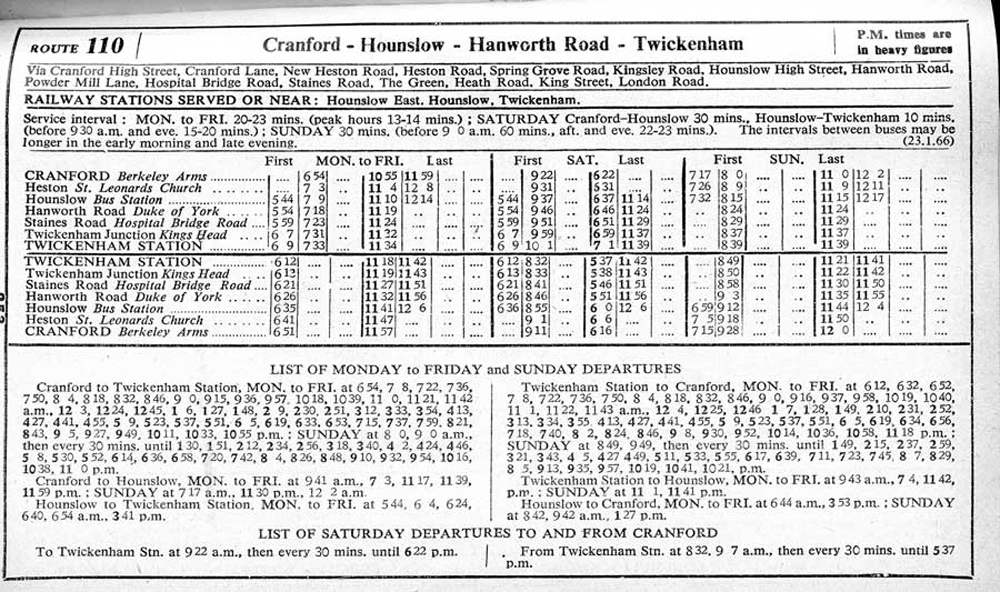 ROUTE 110
Cranford - Hounslow - Hanworth Road - Twickenham
P.M. times are
in heavy figures
Via Cranford High Street, Cranford Lane, New Heston Road, Heston Road, Spring Grove Road, Kingsley Road, Hounslow High Street, Hanworth Road,
Powder Mill Lane, Hospital Bridge Road, Staines Road, The Green, Heath Road, King Street, London Road.
RAILWAY STATIONS SERVED OR NEAR: Hounslow East, Hounslow, Twickenham.
Service interval : MON. to FRI. 20-23 mins. (peak hours 13-14 mins.) ; SATURDAY Cranford-Hounslow 30 mins., Hounslow-Twickenham 10 mins.
(before 9 30 a.m. and eve. 15-20 mins.) ; SUNDAY 30 mins. (before 9 0 a.m. 60 mins., aft. and eve. 22-23 mins.). The intervals between buses may be
longer in the early morning and late evening. (23.1.66)
First MON. to FRI. Last First SAT. Last First SUN. Last
CRANFORD Berkeley Arms .... 6 54 .... 10 55 11 59 .... .... 9 22 .... 6 22 .... 7 17 8 0 .... 11 0 12 2 ....
Heston St. Leonards Church .... 7 3 .. 11 4 12 8 .... .... 9 31 .. 6 31 .... 7 26 8 9 .. 11 9 12 11 ..
Hounslow Bus Station 5 44 7 9 .... 11 10 12 14 .... 5 44 9 37 .... 6 37 11 14 .... 7 32 8 15 .... 11 15 12 17 ....
Hanworth Road Duke of York 5 54 7 18 .. 11 19 .. 5 54 9 46 .. 6 46 11 24 .. 8 24 .. 11 24 ..
Staines Road Hospital Bridge Road 5 59 7 23 .... 11 24 .... 5 59 9 51 .... 6 51 11 29 .... 8 29 .... 11 29 ....
Twickenham Junction Kings Head 6 7 7 31 .. 11 32 .. 6 7 9 59 .. 6 59 11 37 .. 8 37 .. 11 37 ..
TWICKENHAM STATION 6 9 7 33 .... 11 34 .... 6 9 10 1 .... 7 1 11 39 .... 8 39 .... 11 39 ....
TWICKENHAM STATION 6 12 .... 11 18 11 42 .... 6 12 8 32 .... 5 37 11 42 .... 8 49 .... 11 21 11 41 ....
Twickenham Junction Kings Head 6 13 .. 11 19 11 43 .. 6 13 8 33 .. 5 38 11 43 .. 8 50 .. 11 22 11 42 ..
Staines Road Hospital Bridge Road 6 21 .... 11 27 11 51 .... 6 21 8 41 .... 5 46 11 51 .... 8 58 .... 11 30 11 50 ....
Hanworth Road Duke of York 6 26 .. 11 32 11 56 .. 6 26 8 46 .. 5 51 11 56 .. 9 3 .. 11 35 11 55 ..
Hounslow Bus Station 6 35 .... 11 41 12 6 .... 6 36 8 55 .... 6 0 12 6 .... 6 59 9 12 .... 11 44 12 4 ....
Heston St. Leonards Church 6 41 .. 11 47 .. 9 1 .. 6 6 .. 7 5 9 18 .. 11 50 ..
CRANFORD Berkeley Arms 6 51 .... 11 57 .... 9 11 .... 6 16 .... 7 15 9 28 .... 12 0 ....
LIST OF MONDAY to FRIDAY and SUNDAY DEPARTURES
Cranford to Twickenham Station, MON. to FRI. at 6 54, 7 8, 7 22, 7 36,
7 50, 8 4, 8 18, 8 32, 8 46, 9 0, 9 15, 9 36, 9 57, 10 18, 10 39, 11 0, 11 21, 11 42
a.m., 12 3, 12 24, 12 45, 1 6, 1 27, 1 48, 2 9, 2 30, 2 51, 3 12, 3 33, 3 54, 4 13,
4 27, 4 41, 4 55, 5 9, 5 23, 5 37, 5 51, 6 5, 6 19, 6 33, 6 53, 7 15, 7 37, 7 59, 8 21,
8 43, 9 5, 9 27, 9 49, 10 11, 10 33, 10 55 p.m. ; SUNDAY at 8 0, 9 0 a.m.,
then every 30 mins. until 1 30, 1 51, 2 12, 2 34, 2 56, 3 18, 3 40, 4 2, 4 24, 4 46,
5 8, 5 30, 5 52, 6 14, 6 36, 6 58, 7 20, 7 42, 8 4, 8 26, 8 48, 9 10, 9 32, 9 54, 10 16,
10 38, 11 0 p.m.
Cranford to Hounslow, MON. to FRI. at 9 41 a.m., 7 3, 11 17, 11 39,
11 59 p.m. ; SUNDAY at 7 17 a.m., 11 30 p.m., 12 2 a.m.
Hounslow to Twickenham Station, MON. to FRI. at 5 44, 6 4, 6 24,
6 40, 6 54 a.m., 3 41 p.m.
Twickenham Station to Cranford, MON. to FRI. at 6 12, 6 32, 6 52,
7 8, 7 22, 7 36, 7 50, 8 4, 8 18, 8 32, 8 46, 9 0, 9 16, 9 37, 9 58, 10 19, 10 40,
11 1, 11 22, 11 43 a.m., 12 4, 12 25, 12 46 1 7, 1 28, 1 49, 2 10, 2 31, 2 52,
3 13, 3 34, 3 55, 4 13, 4 27, 4 41, 4 55, 5 9, 5 23, 5 37, 5 51, 6 5, 6 19, 6 34, 6 56,
7 18, 7 40, 8 2, 8 24, 8 46, 9 8, 9 30, 9 52, 10 14, 10 36, 10 58, 11 18 p.m. ;
SUNDAY at 8 49, 9 49, then every 30 mins. until 1 49, 2 15, 2 37, 2 59,
3 21, 3 43, 4 5, 4 27 4 49, 5 11, 5 33, 5 55, 6 17, 6 39, 7 11, 7 23, 7 45, 8 7, 8 29,
8 5, 9 13, 9 35, 9 57, 10 19, 10 41, 10 21, p.m.
Twickenham Station to Hounslow, MON. to FRI. at 9 43 a.m., 7 4, 11 42,
p.m. ; SUNDAY at 11 1, 11 41 p.m.
Hounslow to Cranford, MON. to FRI. at 6 44 a.m., 3 53 p.m. ; SUNDAY
at 8 42, 9 42 a.m., 1 27 p.m.
LIST OF SATURDAY DEPARTURES TO AND FROM CRANFORD
To Twickenham Stn. at 9 22 a.m., then every 30 mins. until 6 22 p.m.
From Twickenham Stn. at 8 32, 9 7 a.m., then every 30 mins. until 5 37
p.m.